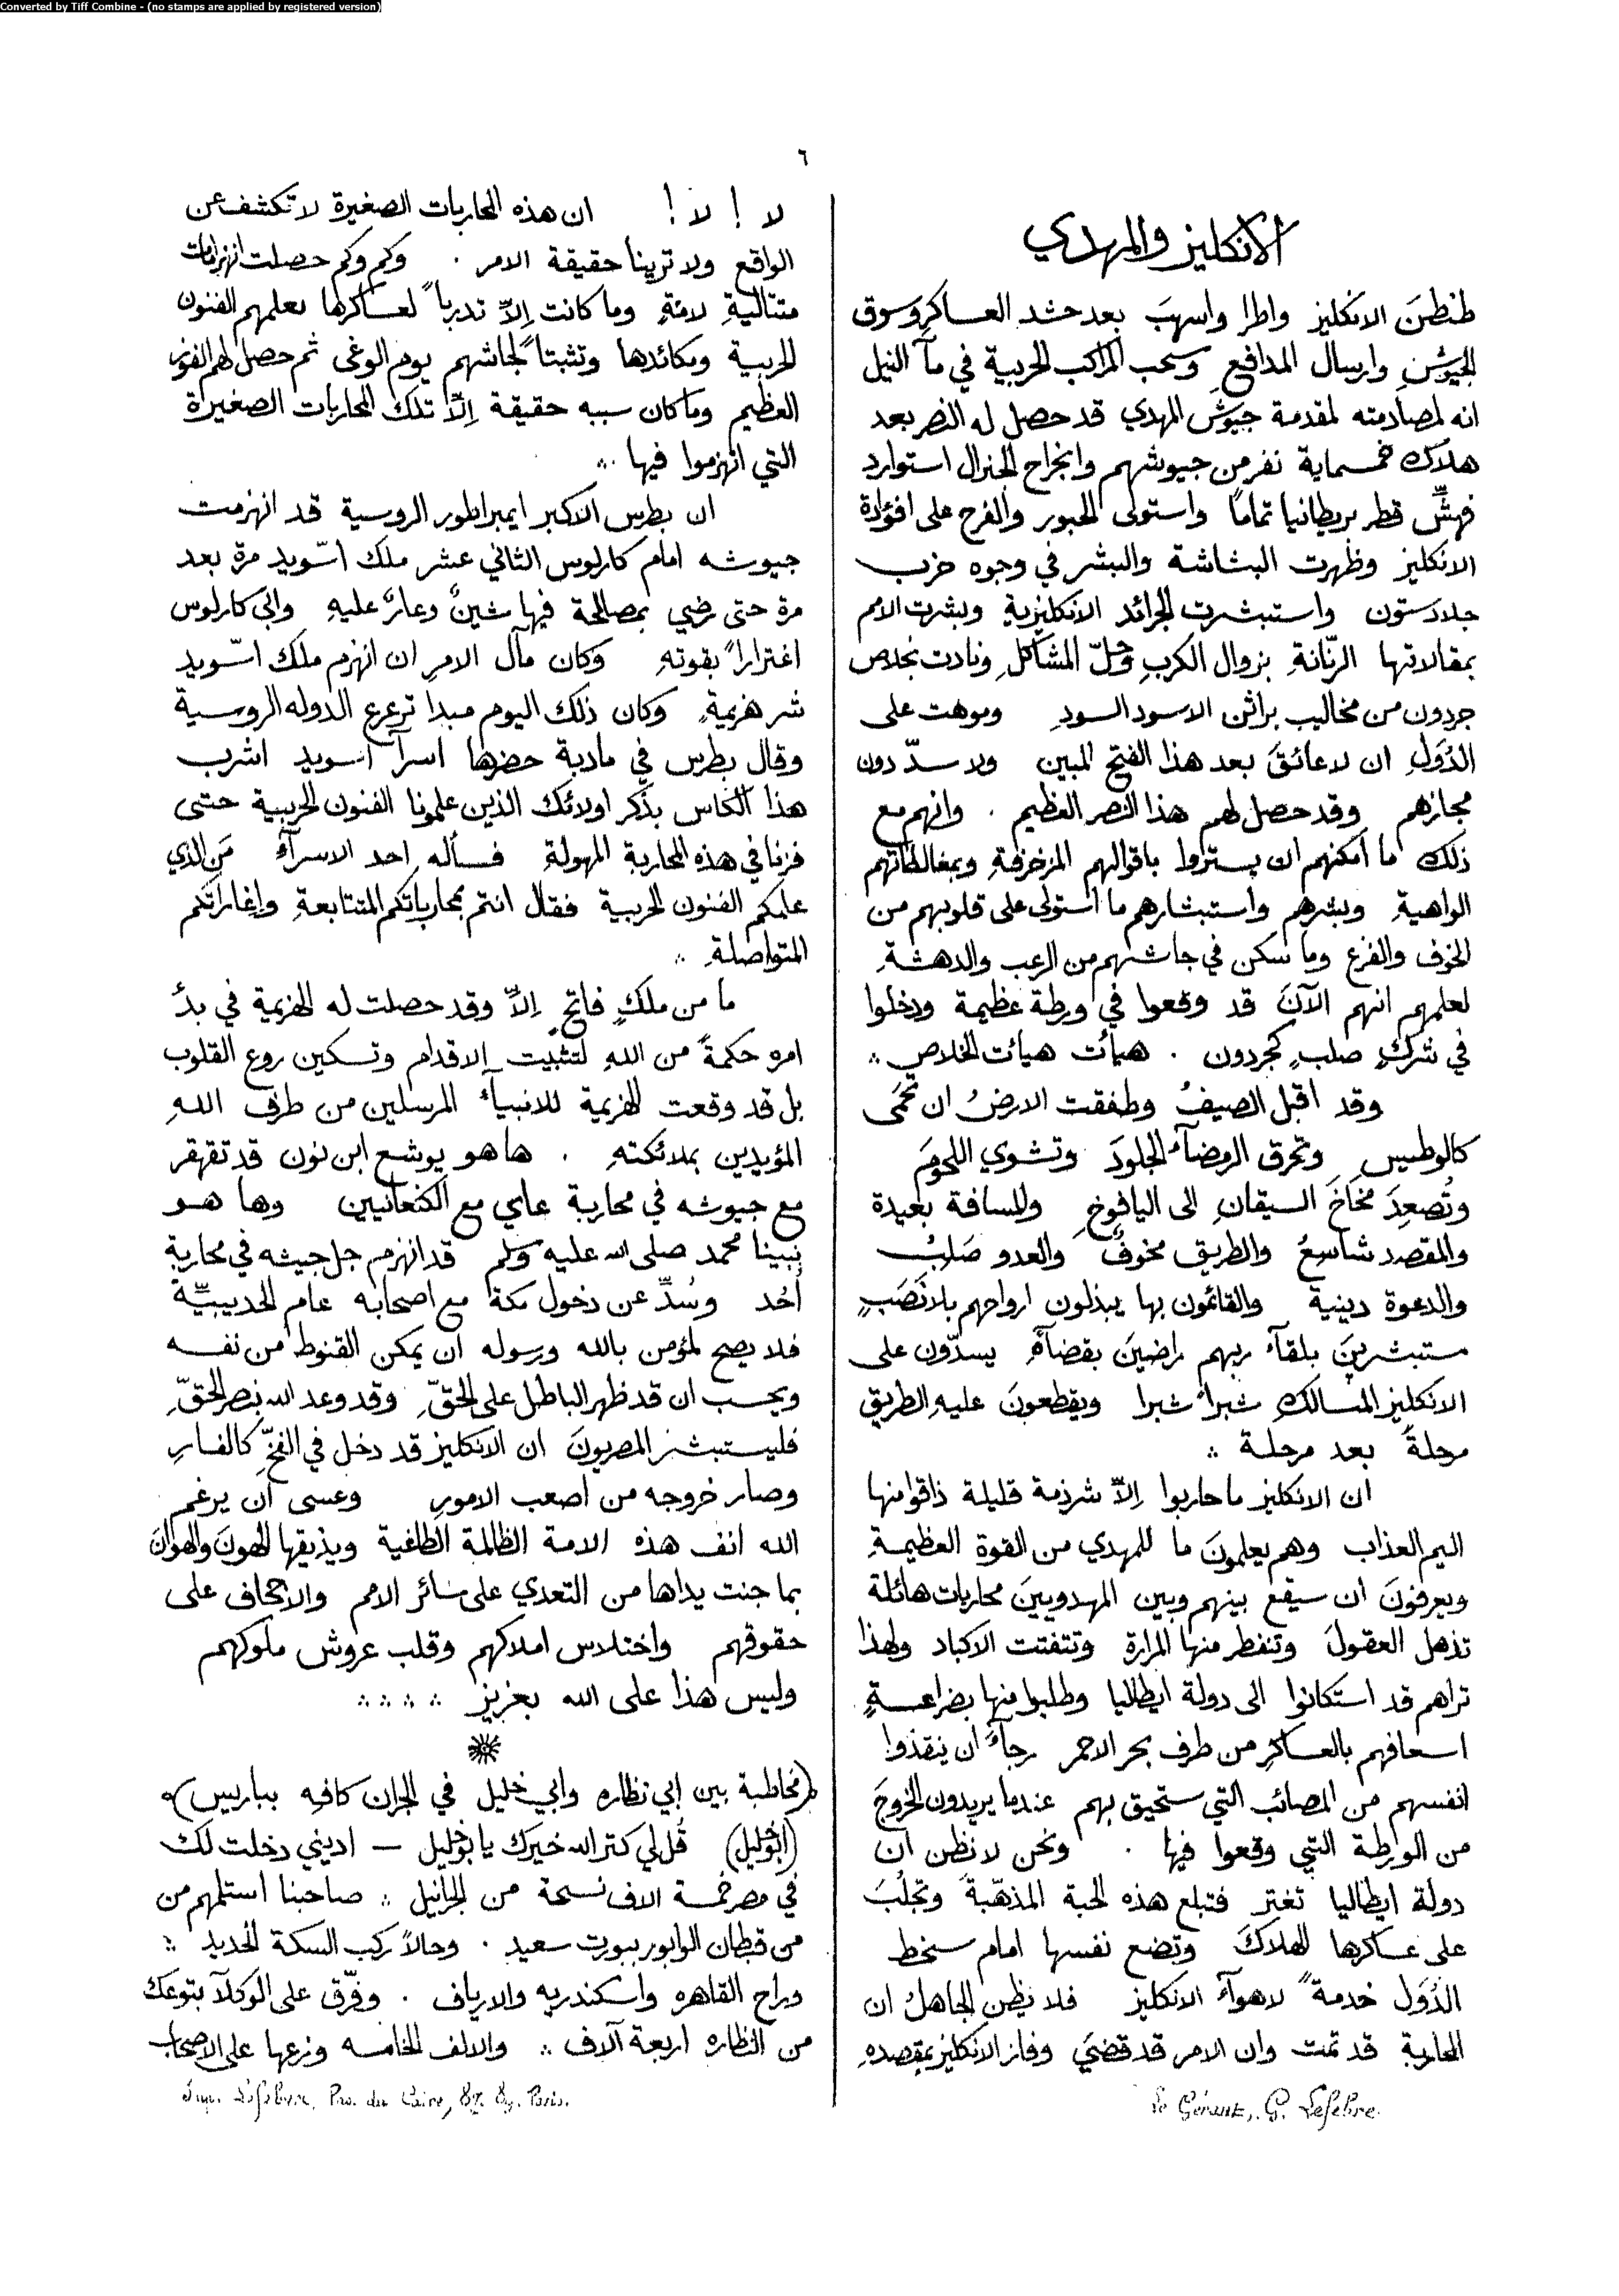 Converted by Tiff Combine - (no stamps are applied by registered version)
٦
الانكليز والمهدي
طنطن الانكليز واطرا واسهبَ بعد حشد العساكر وسوق
الجيوش وارسال المدافع وسحب المراكب الحربية في مآ النيل
انه لمصادمته لمقدمة جيوش المهدي قد حصل له النصر بعد
هلاك خمسماية نفر من جيوشهم وانجراح الجنرال استوارد
فهشّ قطر بريطانيا تماماً واستولى الحبور والفرح على افؤادة
الانكليز وظهرت البشاشة والبشر في وجوه حزب
جلادستون واستبشرت الجرائد الانكليزية وبشرت الامم
بمقالاتها الرنّانةِ بزوال الكربِ وحلّ المشاكلِ ونادت بخلاص
جردون من مخاليب براثن الاسود السودِ وموهت على
الدُوَلِ ان لا عائقَ بعد هذا الفتح المبين ولا سدّ دون
مجازهم وقد حصل لهم هذا النصر العظيم . وانهم مع
ذلك ما امكنهم ان يستروا باقوالهم المزخرفةِ وبمغالطاتهم
الواهيةِ وبشرهم واستبشارهم ما استولى على قلوبهم من
الخوف والفزع وما سكن في جاشهم من الرعب والدهشةِ
لعلمهم انهم الآنَ قد وقعوا في ورطة عظيمة ودخلوا
في شركٍ صلبٍ كجردون . هيأت هيأت الخلاص ∴
وقد اقبل الصيفُ وطفقت الارضُ ان تحمَى
كالوطيس وتحرق الرمضآءُ الجلودَ وتشوي اللحومَ
وتُصعِدَ مخاخَ السيقانِ الى اليافوخِ والمسافة بعيدة
والمقصد شاسعُ والطريق مخوفٌ والعدو صَلبُ
والدعوة دينية والقائمون بها يبذلون ارواحهم بلا نَصَبٍ
مستبشرينَ بلقآء ربهم راضينَ بقضآئهِ يسدّون على
الانكليز المسالك شبراً شبرا ويقطعونَ عليهِ الطريق
مرحلةً بعد مرحلة ∴
ان الانكليز ما حاربوا اِلاّ شرذمة قليلة ذاقوا منها
اليم العذاب وهم يعلمونَ ما للمهدي من القوة العظيمةِ
ويعرفونَ ان سيقع بينهم وبين المهدويينَ محاربات هائلة
تذهل العقولَ وتنفطر منها المرارة وتتفتت الاكباد ولهذا
تراهم قد استكانوا الى دولة ايطاليا وطلبوا منها بضراعةٍ
اسعافهم بالعساكرِ من طرف بحر الاحمر رجآءَ ان ينقذوا
انفسهم من المصائب التي ستحيق بهم عندما يريدون الخروجَ
من الورطة التي وقعوا فيها . ونحن لا نظن ان
دولة ايطاليا تغتر فتبلع هذه الحبة المذهّبةَ وتجلُبَ
على عساكرها الهلاكَ وتضع نفسها امام سخط
الدُوَل خدمةً لاهوآء الانكليز فلا يظن الجاهلُ ان
المحاربة قد تمت وان الامر قد قضيَ وفاز الانكليز بمقصدهِ
Le Gérant, G. Lefebre.
لا ! لا ! ان هذه المحاربات الصغيرة لا تكشف عن
الواقع ولا ترينا حقيقة الامر . وكم وكم حصلت انهزامات
متتاليةِ لامةٍ وما كانت اِلاّ تدرباً لعساكرها لعلمهم الفنون
الحربية ومكائدها وتثبتاً لجاشهم يوم الوغى ثم حصل لهم الفوز
العظيم وما كان سببه حقيقة اِلاّ تلك المحاربات الصغيرة
التي انهزموا فيها ∴
ان بطرس الاكبر ايمبراطور الروسية قد انهزمت
جيوشه امام كارلوس الثاني عشر ملك اسّويد مرة بعد
مرة حتى رضي بمصالحة فيها شينٌ وعارٌ عليهِ وابى كارلوس
اغتراراً بقوتهِ وكان مآل الامرِ ان انهزم ملك اسّويد
شر هزيمةٍ وكان ذلك اليوم مبدا ترعرع الدوله الروسية
وقال بطرس في مادبة حضرها اسرآ اسويد اشرب
هذا الكاس بذكر اولائك الذين علمونا الفنون الحربية حتى
فزنا في هذه المحاربة المهولةِ فسأله احد الاسرآء مَن الذي
علمكم الفنون الحربية فقال انتم بمحارباتكم المتتابعةِ واِغاراتكم
المتواصلةِ ∴
ما من ملكٍ فاتحٍ اِلاّ وقد حصلت له الهزيمة في بدأ
امره حكمةً من اللهِ لتثبيت الاقدام وتسكين روع القلوب
بل قد وقعت الهزيمة للانبيآء المرسلين من طرف اللهِ
المؤيدين بملائكتهِ . ها هو يوشع ابن نون قد تقهقر
مع جيوشه في محاربة عاي مع الكنعانيين وها هو
نبينا محمد صلى الله عليه وسلم قد انهزم جل جيشه في محاربة
أُحد وسُدّ عن دخول مكة مع اصحابه عام الحديبيّة
فلا يصح لمؤمن بالله ورسوله ان يمكن القنوط من نفسه
ويحسب ان قد ظهر الباطل على الحقّ وقد وعد الله بنصر الحقّ
فليستبشر المصريونَ ان الانكليز قد دخل في الفخِّ كالفارِ
وصار خروجه من اصعب الامورِ وعسى ان يرغم
الله انف هذه الامة الظالمة الطاغية ويذيقها الهونَ والهوانَ
بما جنت يداها من التعدي على سائر الامم والاجحاف على
حقوقهم واختلاس املاكهم وقلب عروش ملوكهم
وليس هذا على الله بعزيز ∴ ∴ ∴
(مخاطبة بين ابي نظاره وابي خليل في الجران كافيه بباريس)
(ابو خليل) قُل لي كتر الله خيرك يا بو خليل — اديني دخلت لك
في مصر خمسة الاف نسخة من الجرانيل ∴ صاحبنا استلمهم من
من قبطان الوابور ببورت سعيد . وحالاً ركب السكة الحديد ∴
وراح القاهره واسكندريه والارياف . وفرّق على الوكلآ بتوعك
من النظاره اربعة آلاف ∴ والالف الخامسه وزعها على الاصحاب
Imp. Lefebvre, Pas. du Caire, 87. 89. Paris.